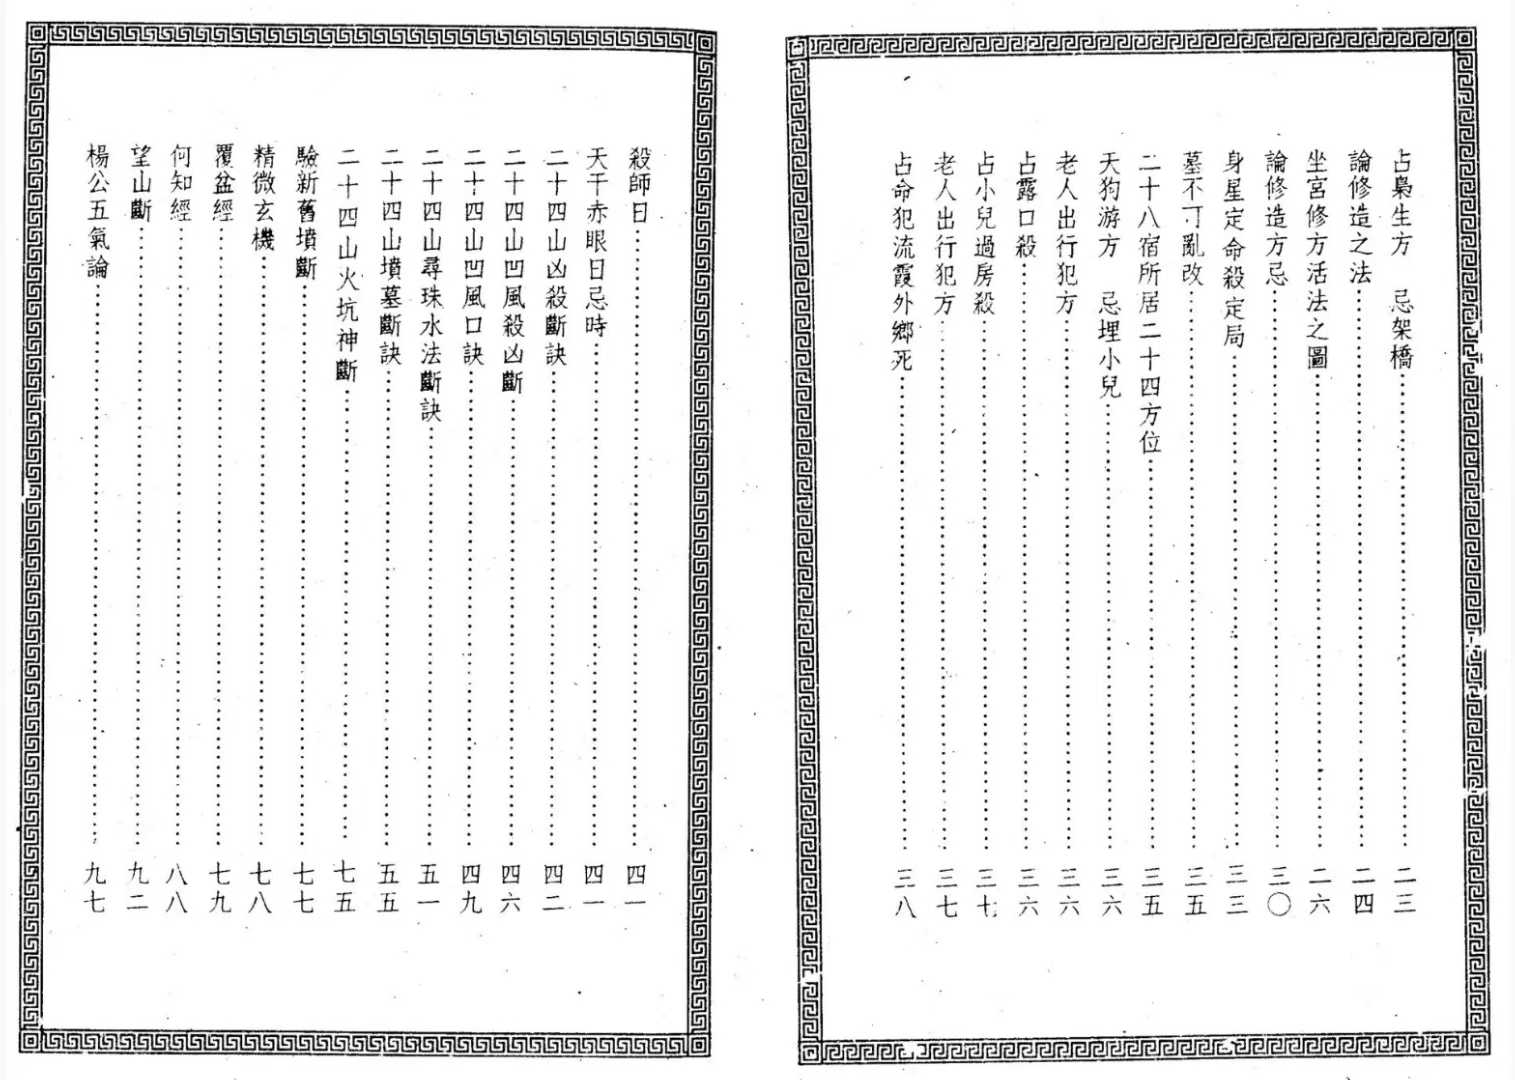 占梟生方　忌架橋……二三
論修造之法……二四
坐宮修方活法之圖……二六
論修造方忌……三〇
身星定命殺定局……三三
墓不可亂改……三五
二十八宿所居二十四方位……三五
天狗游方　忌埋小兒……三六
老人出行犯方……三六
占露口殺……三六
占小兒過房殺……三七
老人出行犯方……三七
占命犯流霞外鄉死……三八
殺師日……四一
天干赤眼日忌時……四一
二十四山凶殺斷訣……四二
二十四山凹風殺凶斷……四六
二十四山凹風口訣……四九
二十四山尋珠水法斷訣……五一
二十四山墳墓斷訣……五五
二十四山火坑神斷……七五
驗新舊墳斷……七七
精微玄機……七八
覆盆經……七九
何知經……八八
望山斷……九二
楊公五氣論……九七